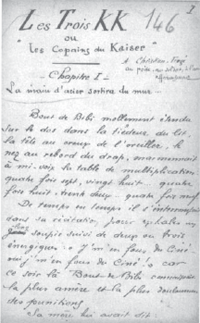 I
Les Trois KK
146
ou
"Les Copains du Kaiser"
Chapitre I
La main d'acier sortira du mur
Bout de Bibi mollement étendu
sur le dos dans la tiédeur du lit,
la tête au creux de l'oreiller, le
nez au rebord du drap, marmonnait
à mi-voix la table de multiplication
quatre fois sept, vingt huit... quatre
fois huit trente deux... quatre fois neuf
De temps en temps il s'interrompait
dans sa récitation, pour exhaler un
soupir suivi de deux ou trois
énergiques : « J'm'en fous du Ciné!
oui, j'm'en fous du Ciné! » car
ce soir-là Bout de Bibi connaissait
la plus amère et la plus douloureuse
des punitions
Sa mère lui avait dit